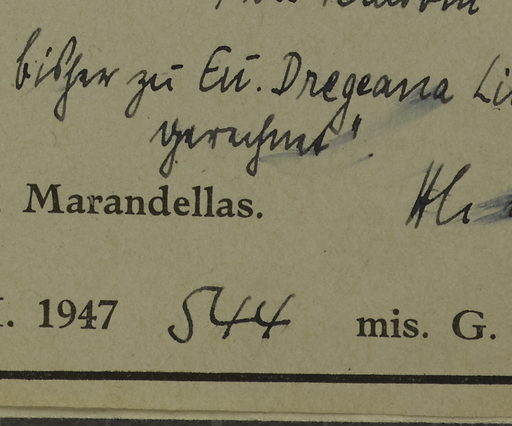 bisher zu Eu. Dregeana Li
gerechnet".
Marandellas.
. 1947 544 mis. G.